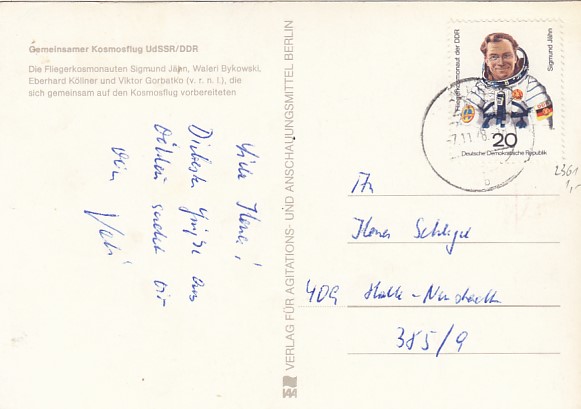 Gemeinsamer Kosmosflug UdSSR/DDR
Die Fliegerkosmonauten Sigmund Jähn, Waleri Bykowski,
Eberhard Köllner und Viktor Gorbatko (v. r. n. l.), die
sich gemeinsam auf den Kosmosflug vorbereiteten
Liebe
Grüße aus
sendet Dir
Dein
VERLAG FÜR AGITATIONS- UND ANSCHAUUNGSMITTEL BERLIN
Fliegerkosmonaut der DDR
Sigmund Jähn
20
Deutsche Demokratische Republik
-7.11.78
b
2361
1,-
An
409 Halle-Neustadt
385/9